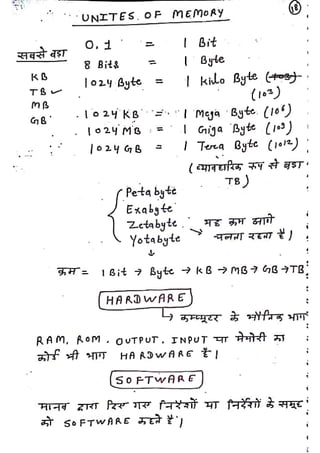 UNITES OF MEMORY
18
सबसे बड़ा
0,1 = 1 Bit
8 Bits = 1 Byte
KB 1024 Byte = 1 kilo Byte (10³)
TB ✓
MB 1024 KB = 1 Mega Byte (10⁶)
GB 1024 MB = 1 Giga Byte (10⁹)
1024 GB = 1 Tera Byte (10¹²)
(व्यावहारिक रूप से बड़ा TB)
Petabyte
Exabyte
Zetabyte
Yotabyte
यह क्रम आगे
चलता रहता है।
क्रम = 1 Bit → Byte → KB → MB → GB → TB
HARDWARE
कम्प्यूटर के भौतिक भाग
RAM, ROM, OUTPUT, INPUT या मेमोरी का
कोई भी भाग HARDWARE है।
SOFTWARE
मानव द्वारा दिए गए निर्देशों या निर्देशों के समूह
को SOFTWARE कहते हैं।